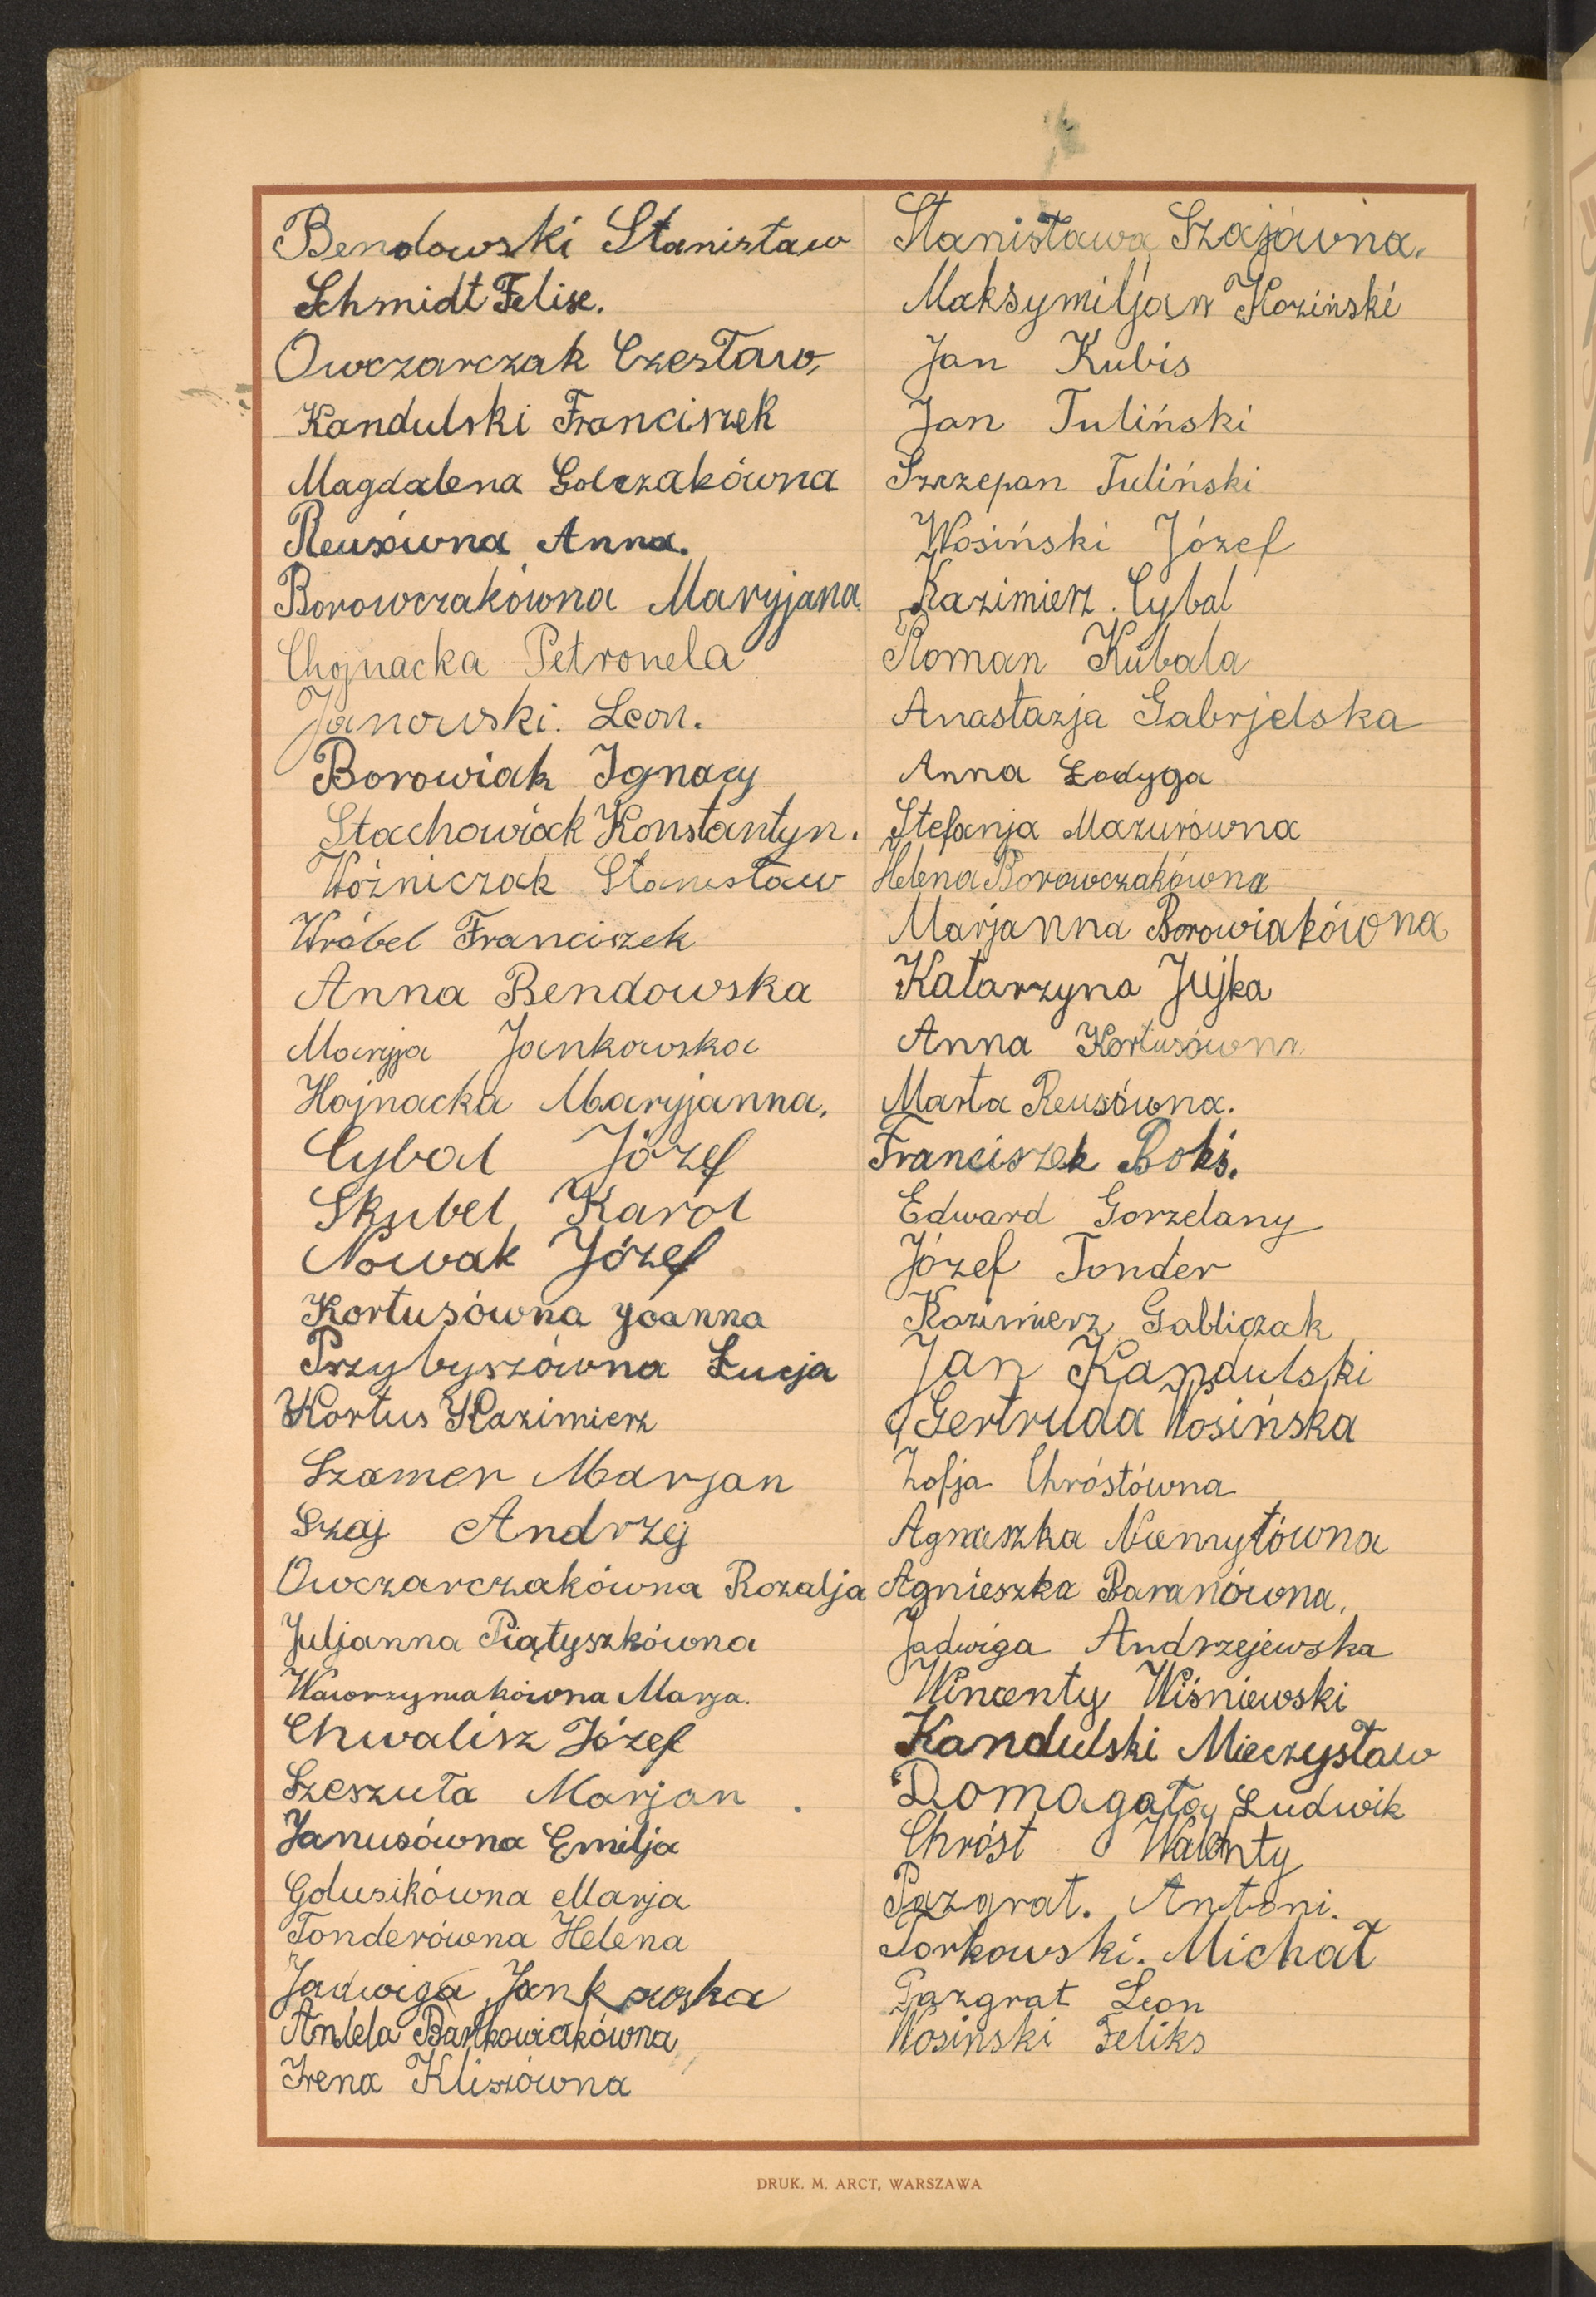 Bendowski Stanisław
Schmidt Felisc.
Owczarczak Czesław,
Kandulski Franciszek
Magdalena Golczakówna
Reusówna Anna.
Borowczakówna Maryjana
Chojnacka Petronela
Janowski. Leon.
Borowiak Ignacy
Stachowiak Konstantyn.
Woźniczak Stanisław
Wróbel Franciszek
Anna Bendowska
Maryja Jankowska
Hojnacka Maryjanna,
Cybal Józef
Skubel Karol
Nowak Józef
Kortusówna Joanna
Przybyszówna Łucja
Kortus Kazimierz
Szamer Marjan
Szaj Andrzej
Owczarczakówna Rozalja
Juljanna Piątyszkówna
Wawrzyniakówna Marja.
Chwalisz Józef
Szeszuła Marjan
Janusówna Emilja
Golusikówna Marja
Tonderówna Helena
Jadwiga Jankowska
Aniela Bańkowiakówna
Irena Kliszówna
Stanisława Szajówna.
Maksymiljan Koziński
Jan Kubis
Jan Tuliński
Szczepan Tuliński
Wosiński Józef
Kazimierz. Cybal
Roman Kubala
Anastazja Gabrjelska
Anna Łodyga
Stefanja Mazurówna
Helena Borowczakówna
Marjanna Borowiakówna
Katarzyna Jujka
Anna Kortusówna
Marta Reusówna.
Franciszek Boks.
Edward Gorzelany
Józef Tonder
Kazimierz Gabliczak
Jan Kandulski
Gertruda Wosińska
Zofja Chróstówna
Agnieszka Niemytówna
Agnieszka Baranówna.
Jadwiga Andrzejewska
Wincenty Wiśniewski
Kandulski Mieczysław
Domagała Ludwik
Chróst Walenty
Pazgrat. Antoni.
Torkowski. Michał
Pazgrat Leon
Wosiński Feliks
DRUK. M. ARCT, WARSZAWA